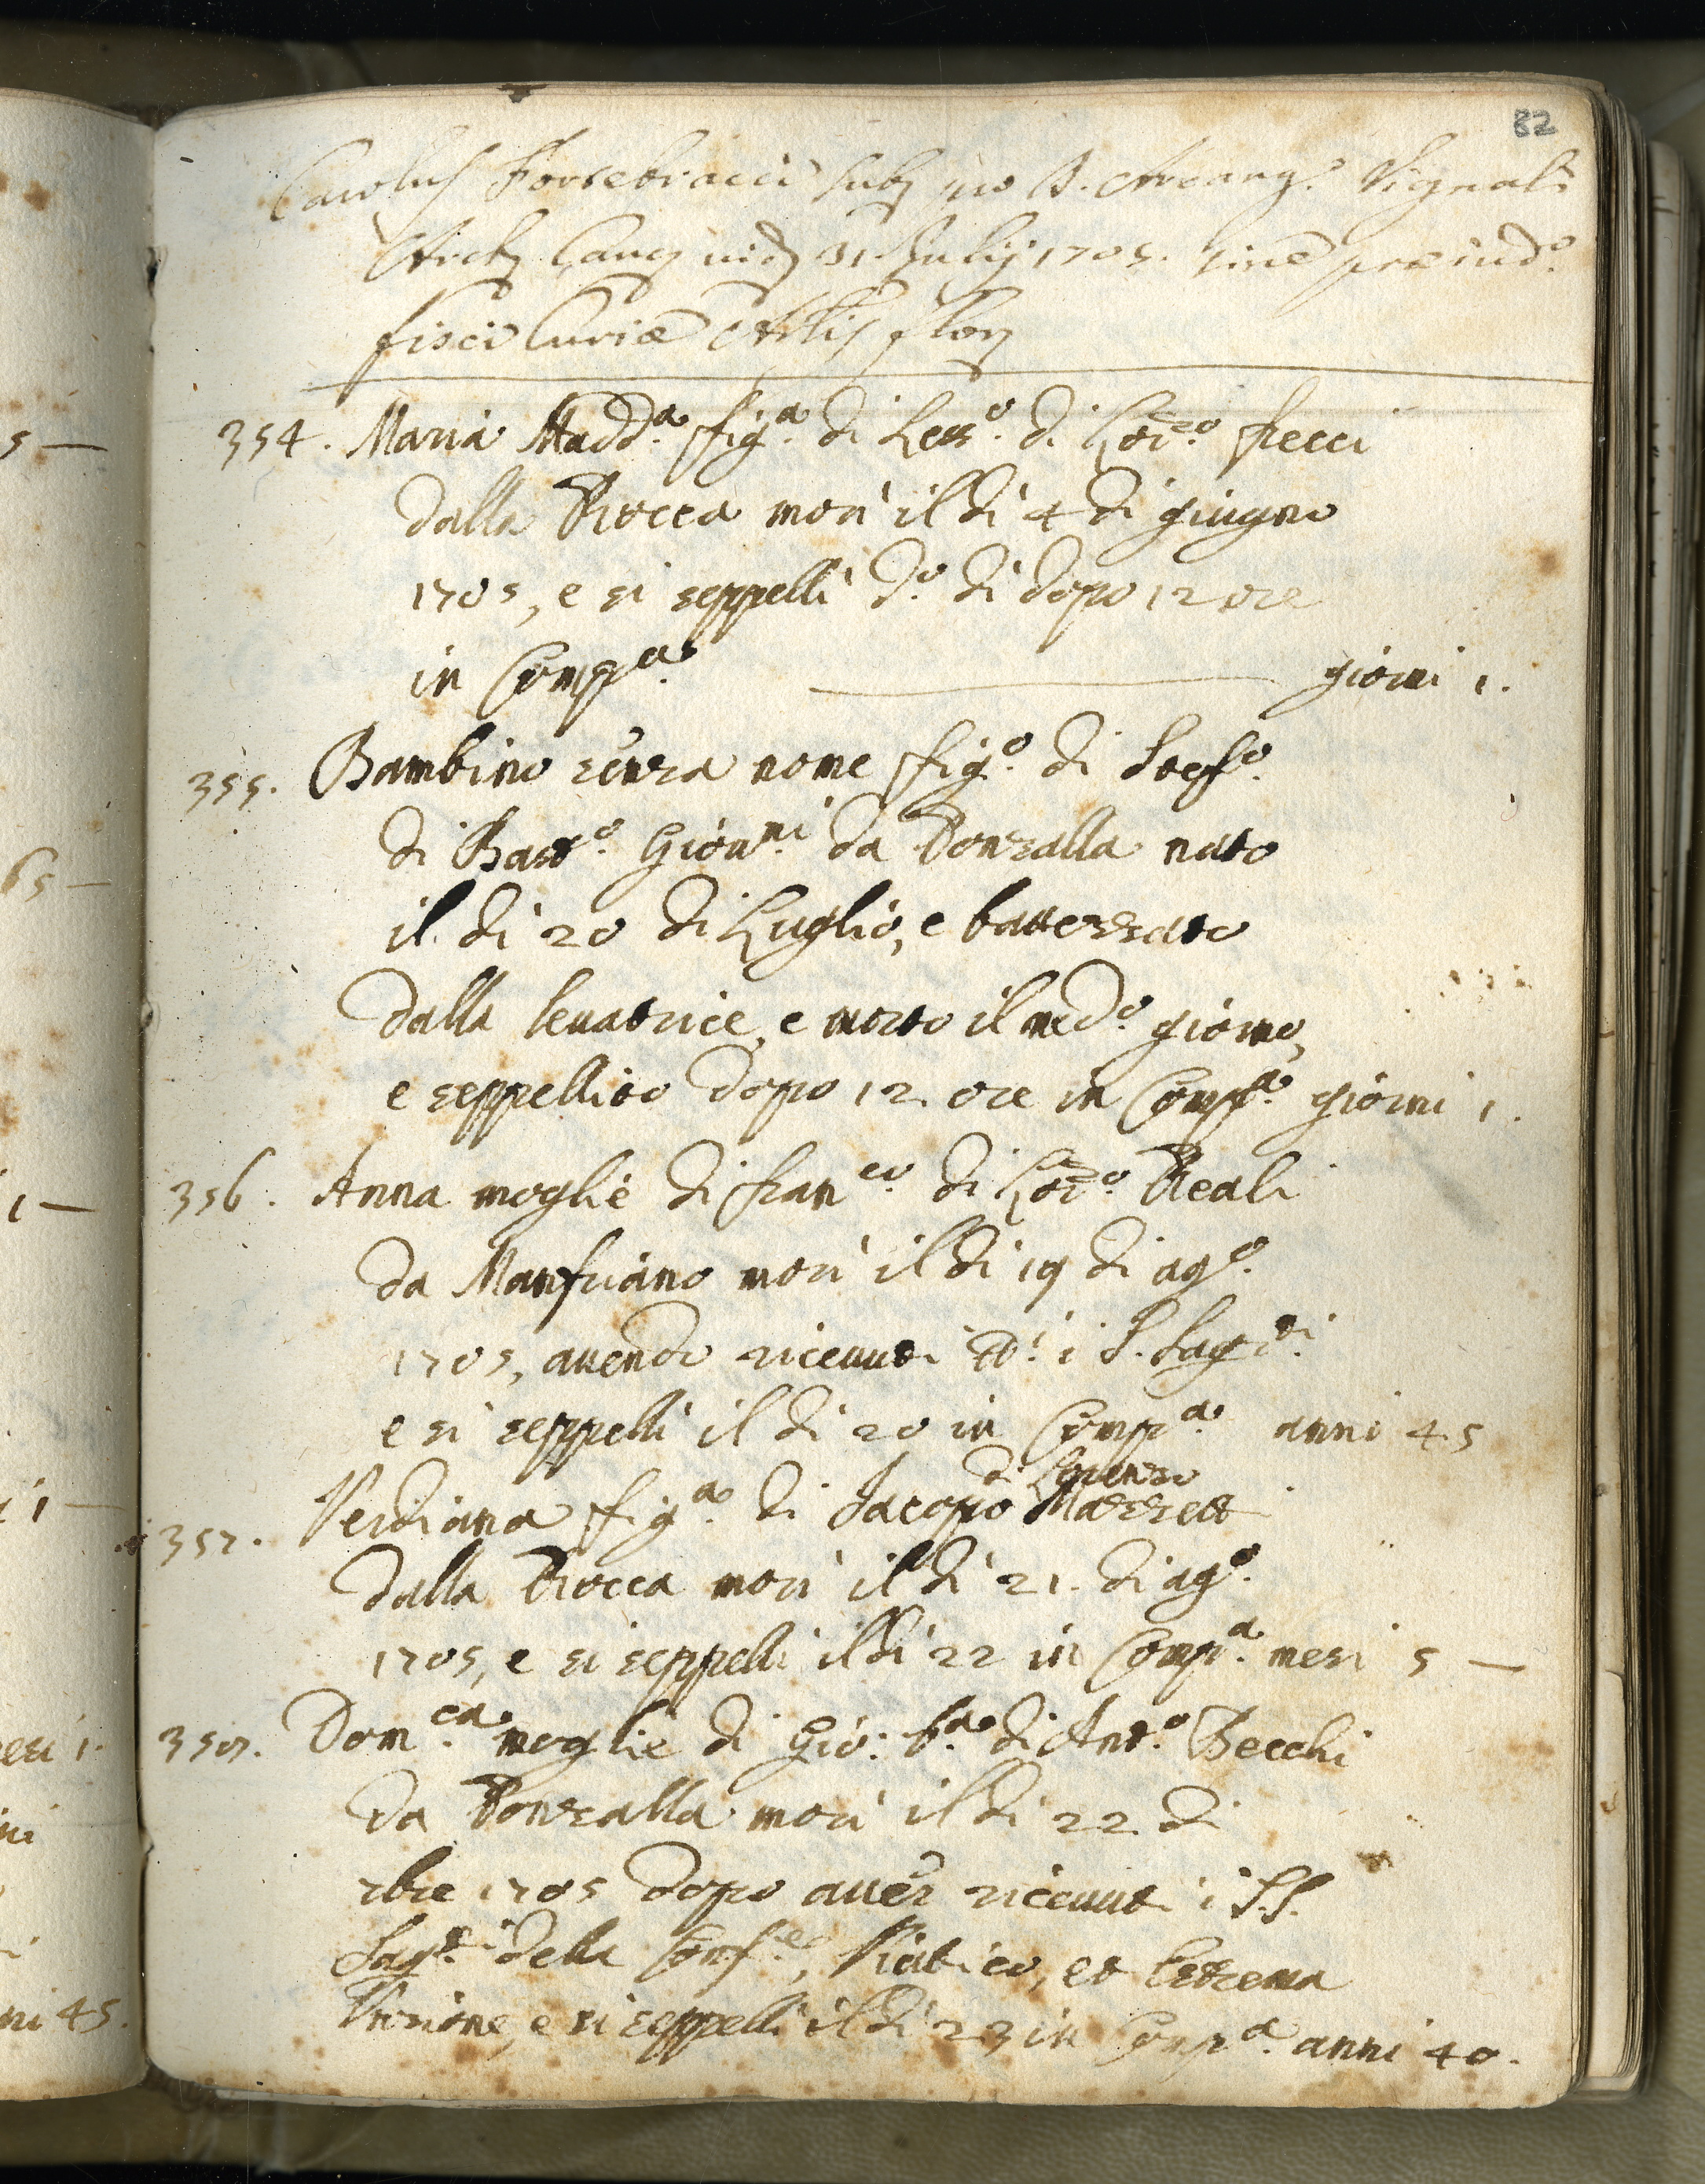 82
Carolus Fortebracci Subs pro D. Arcang.º Vignali
Archi Canc vid 31. Julij 1705. sine preiud.º
fisci Curiæ Artis flor
354. Maria Madd.ª fig.ª di Less.º di Lor.zo Fecci
dalla Rocca morì il dì 4 di giugno
1705, e si seppellì d.º dì dopo 12 ore
in Comp.ª giorni 1.
355. Bambino senza nome fig.º di
di Bast.º Gioan.ni da Ponzalla nato
il dì 20 di Luglio, e battezzato
dalla levatrice, e morto il med.º giorno,
e seppellito dopo 12. ore in Comp.ª giorni 1.
356. Anna moglie di fran.co di Lor.zo Reali
da Manfriano morì il dì 19 di ag.º
1705, avendo ricevuti tt.i i S. Sag.ti
e si seppellì il dì 20 in Comp.ª anni 45
di Lorenzo
357. Verdiana fig.ª di Jacopo Mazzett
dalla Rocca morì il dì 21. di ag.º
1705, e si seppellì il dì 22 in Comp.ª mesi 5 —
358. Dom.ca moglie di Gio: b.ª di Ant.º Becchi
da Ponzalla morì il dì 22 di
7bre 1705 dopo aver ricevuti i S.S.
Sag.ti della Conf.e, Viatico, et Estrema
Unzione, e si seppellì il dì 23 in Comp.ª anni 40.
5 —
65 —
1 —
1 —
mesi 1.
ni 45.